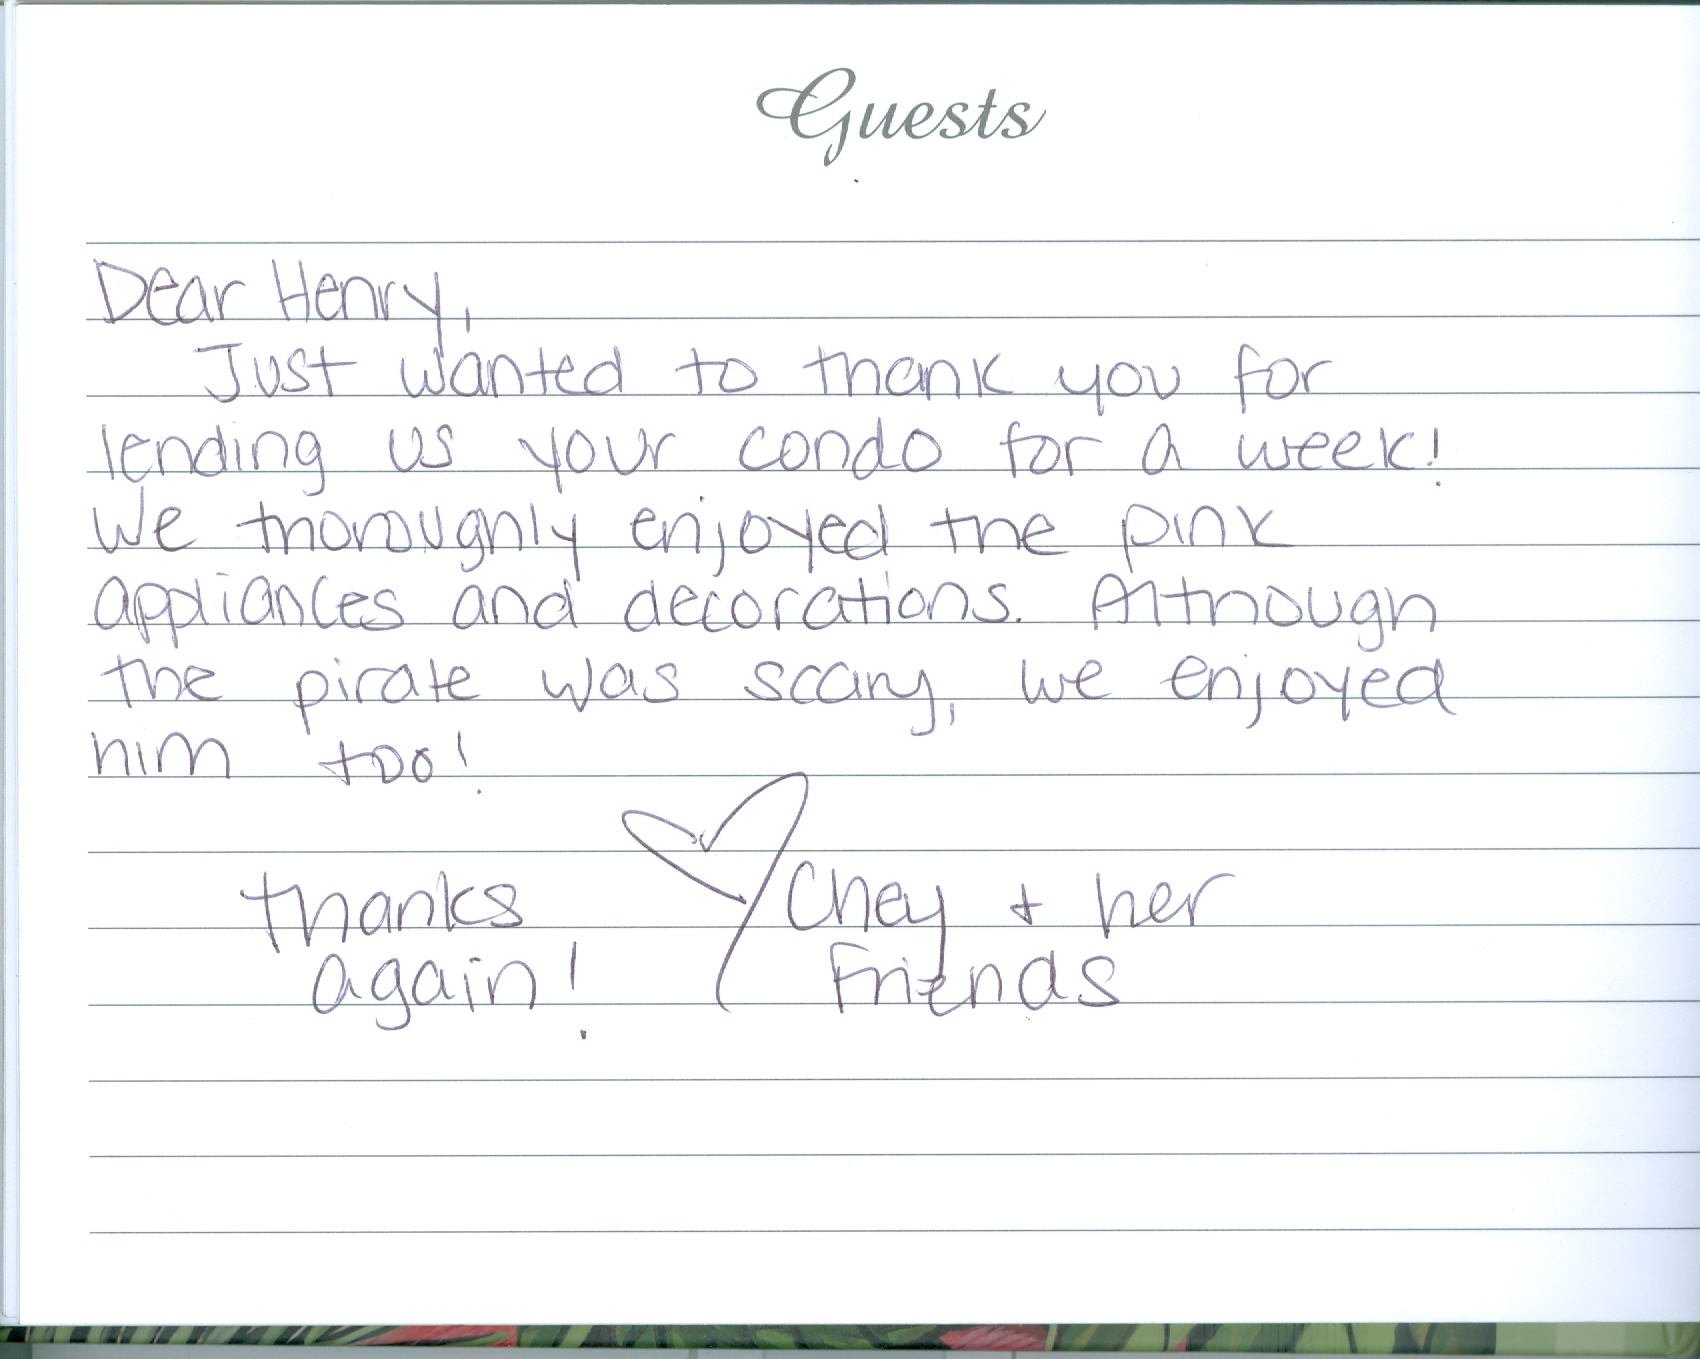 Guests
Dear Henry,
Just wanted to thank you for
lending us your condo for a week!
We thoroughly enjoyed the pink
appliances and decorations. Although
the pirate was scary, we enjoyed
him too!
thanks
again!
Chey + her
Friends